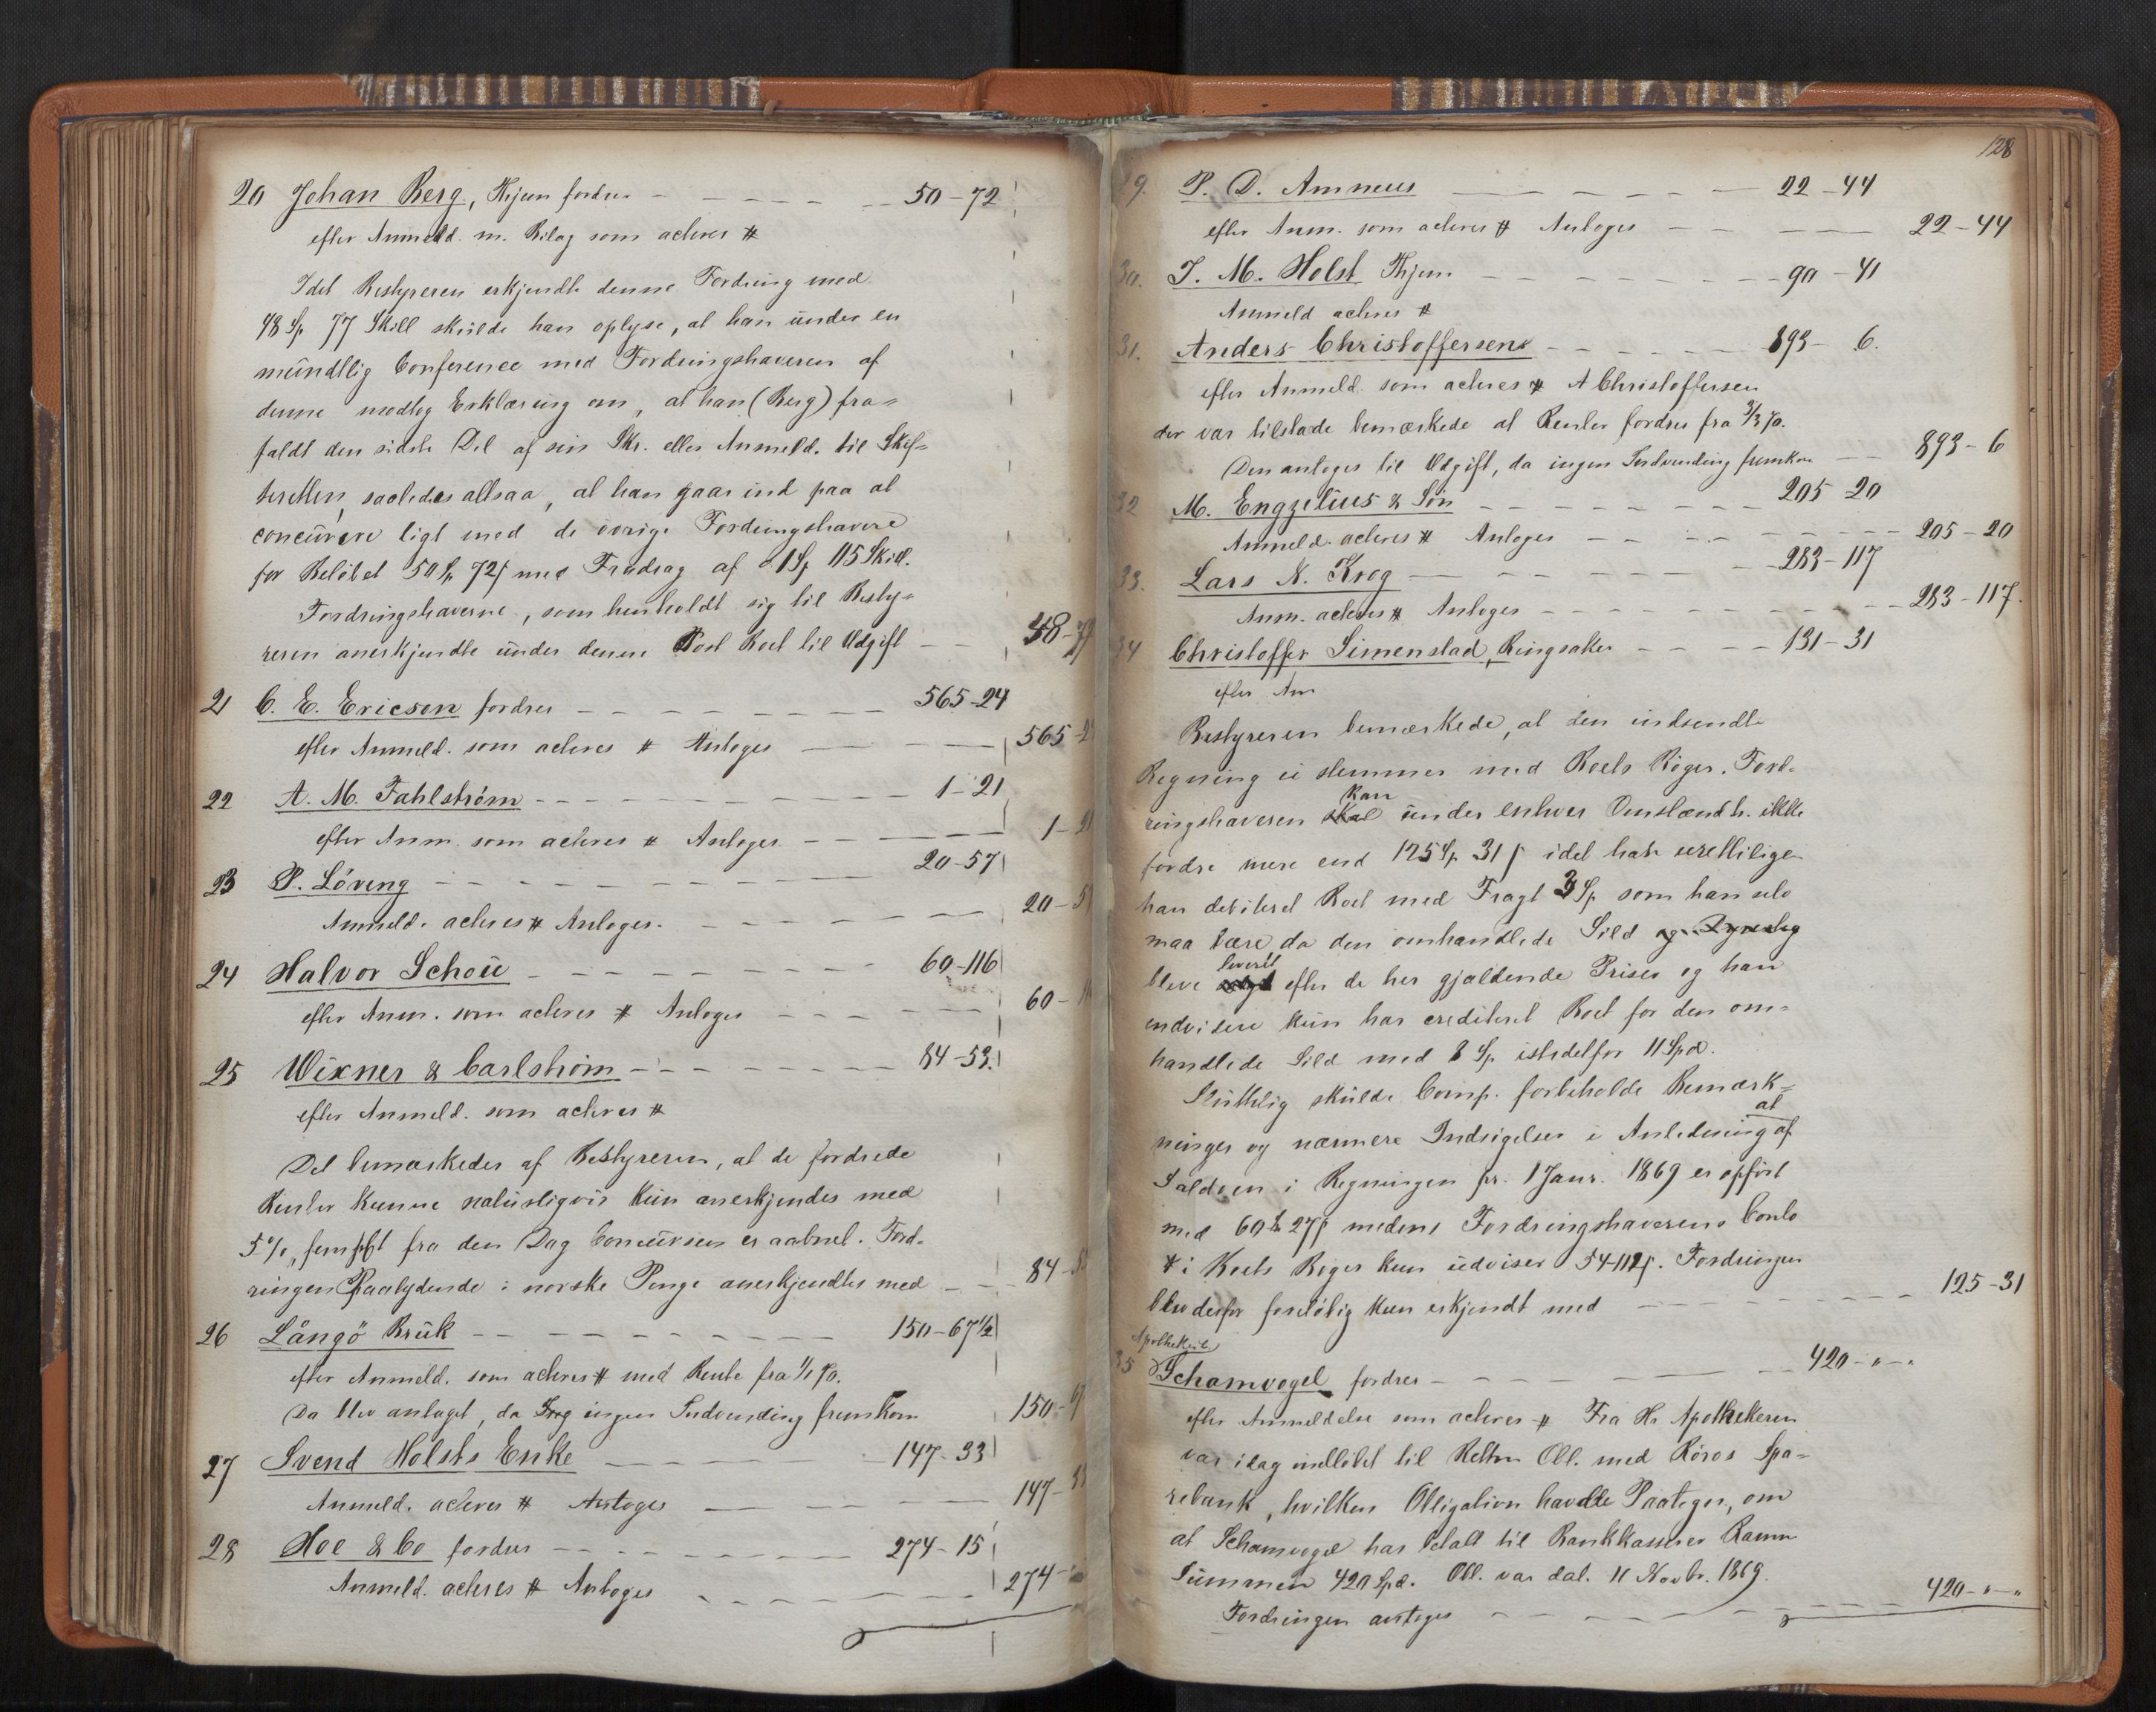 20 Johan Berg, Thjem fordrer - - - - - - 50-72
efter Anmeld. m. Bilag som acteres #
Idet Bestyreren erkjendte denne Fordring med
48 Sp 77 Skill skulde han oplyse, at han under en
mündtlig Conference med Fordringshaveren af
denne modtog Erklæring om, at han (Berg) fra=
faldt den sidste Del af sin Skr. eller Anmeld. til Skif=
teretten, saaledes altsaa, at han gaar ind paa at
concürere ligt med de övrige Fordringshavere
for Belöbet 50 Sp 72 s med Fradrag af 1 Sp 115 Skill.
Fordringshaverne, som henholdt sig til Besty=
reren anerkjendte ünder denne Post Boet til Udgift - - 48-77
21 C. E. Ericson fordrer - - - - - - - 565-24
efter Anmeld. som acteres # Antoges - - - 565-2
22 A. M. Fahlström - - - - - - - 1-21
efter Anm. som acteres # Antoges - - - - 1-2
23 P. Löveng - - - - - - - 20-57
Anmeld. acteres # Antoges. - - - - - 20-5
24 Halvor Schou - - - - - - - 60-116
efter Anm. som acteres # Antoges - - - - 60-1
25 Wixner & Carlström - - - - - - - 84-53.
efter Anmeld. som acteres #
Det bemærkedes af Bestyreren, at de fordrede
Renter kunne natürligvis kün anerkjendes med
5%, fem pCt fra den Dag Concürsen er aabnet. Ford-
ringen Paalydende i norske Penge anerkjendtes med - - 84-5
26 Långö Brük - - - - - - - 150-67½
efter Anmeld. som acteres # med Rente fra 1/1 70.
Da blev antaget, da ingen Indvending fremkom 150-6
27 Svend Holsts Enke - - - - - 147-33
Anmeld. acteres # Antoges - - - - 147-33
28 Hoe & Co fordrer - - - - - - 274-15
Anmeld. acteres # Antoges - - - - - 274-
128
29. P. D. Amneus - - - - - 22-44
efter Anm. som acteres # Antoges - - - 22-44
30. J. M. Holst Thjem - - - - - - 90-41
Anmeld acteres #
31. Anders Christoffersen - - - - - 893-6.
efter Anmeld. som acteres # A Christoffersen
der var tilstede bemærkede at Renter fordres fra 3/3 70.
Den antoges til Udgift, da ingen Indvending fremkom - - 893-6
32 M. Engzelius & Sön - - - - - - 205-20
Anmeld. acteres # Antoges - - - - - - 205-20
33. Lars N. Krog - - - - - - 283-117
Anm. acteres # Antoges - - - - - - 283-117.
34 Christoffer Simenstad, Ringsaker - - - - 131-31
efter Anm
Bestyreren bemærkede, at den indsendte
Regning ei stemmer med Boets Böger. Ford-
kan
ringshaveren skal ünder enhver Omstændh. ikke
fordre mere end 125 Sp 31 s idet han urettiligen
han debiteret Boet med Fragt 3 Sp som han selv
maa bære, da den omhandlede Sild og
leveret
bleve efter de her gjældende Priser og han
endvidere kün har crediteret Boet for den om=
handlede Sild med 8 Sp istedetfor 11 Spd.
Slüttelig skülde Comp. forbeholde Bemærk=
at
ninger og nærmere Indsigelser i Anledning af
Saldoen i Regningen pr. 1 Janr. 1869 er opfört
med 60 Sp 27 s medens Fordringshaverens Conto
# i Boets Böger kun üdviser 54-112 s. Fordringen
blev derfor foreløbig kun erkjendt med - - - - 125-31
Apotheker
35 Schamvogel fordrer - - - - - - 420-"-"
efter Anmeldelse som acteres # Fra Hr Apothekeren
var idag indlöbet til Retten Obl. med Röros Spa=
rebank, hvilken Obligation havde Paategn., om
at Schamvogel har betalt til Bankkasserer Ramm
Summen 420 Spd. Obl. var dat. 11 Novbr. 1869.
Fordringen antoges - - - - - - 420-"-"